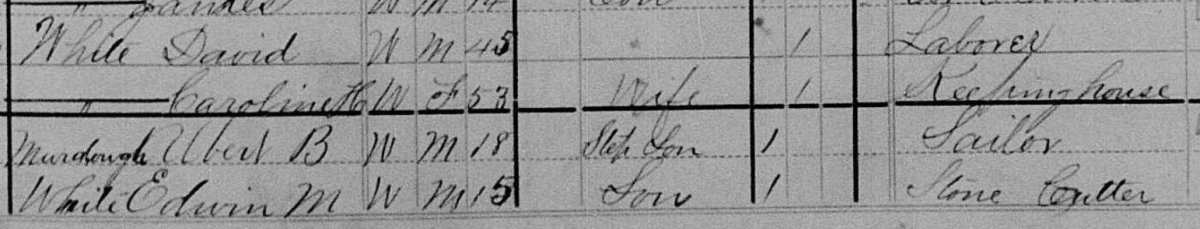 " W M 14 Son
White David W M 45 1 Laborer
" Caroline H W F 53 Wife 1 Keeping house
Murdough Albert B W M 18 Step Son 1 Sailor
White Edwin M W M 15 Son 1 Stone Cutter